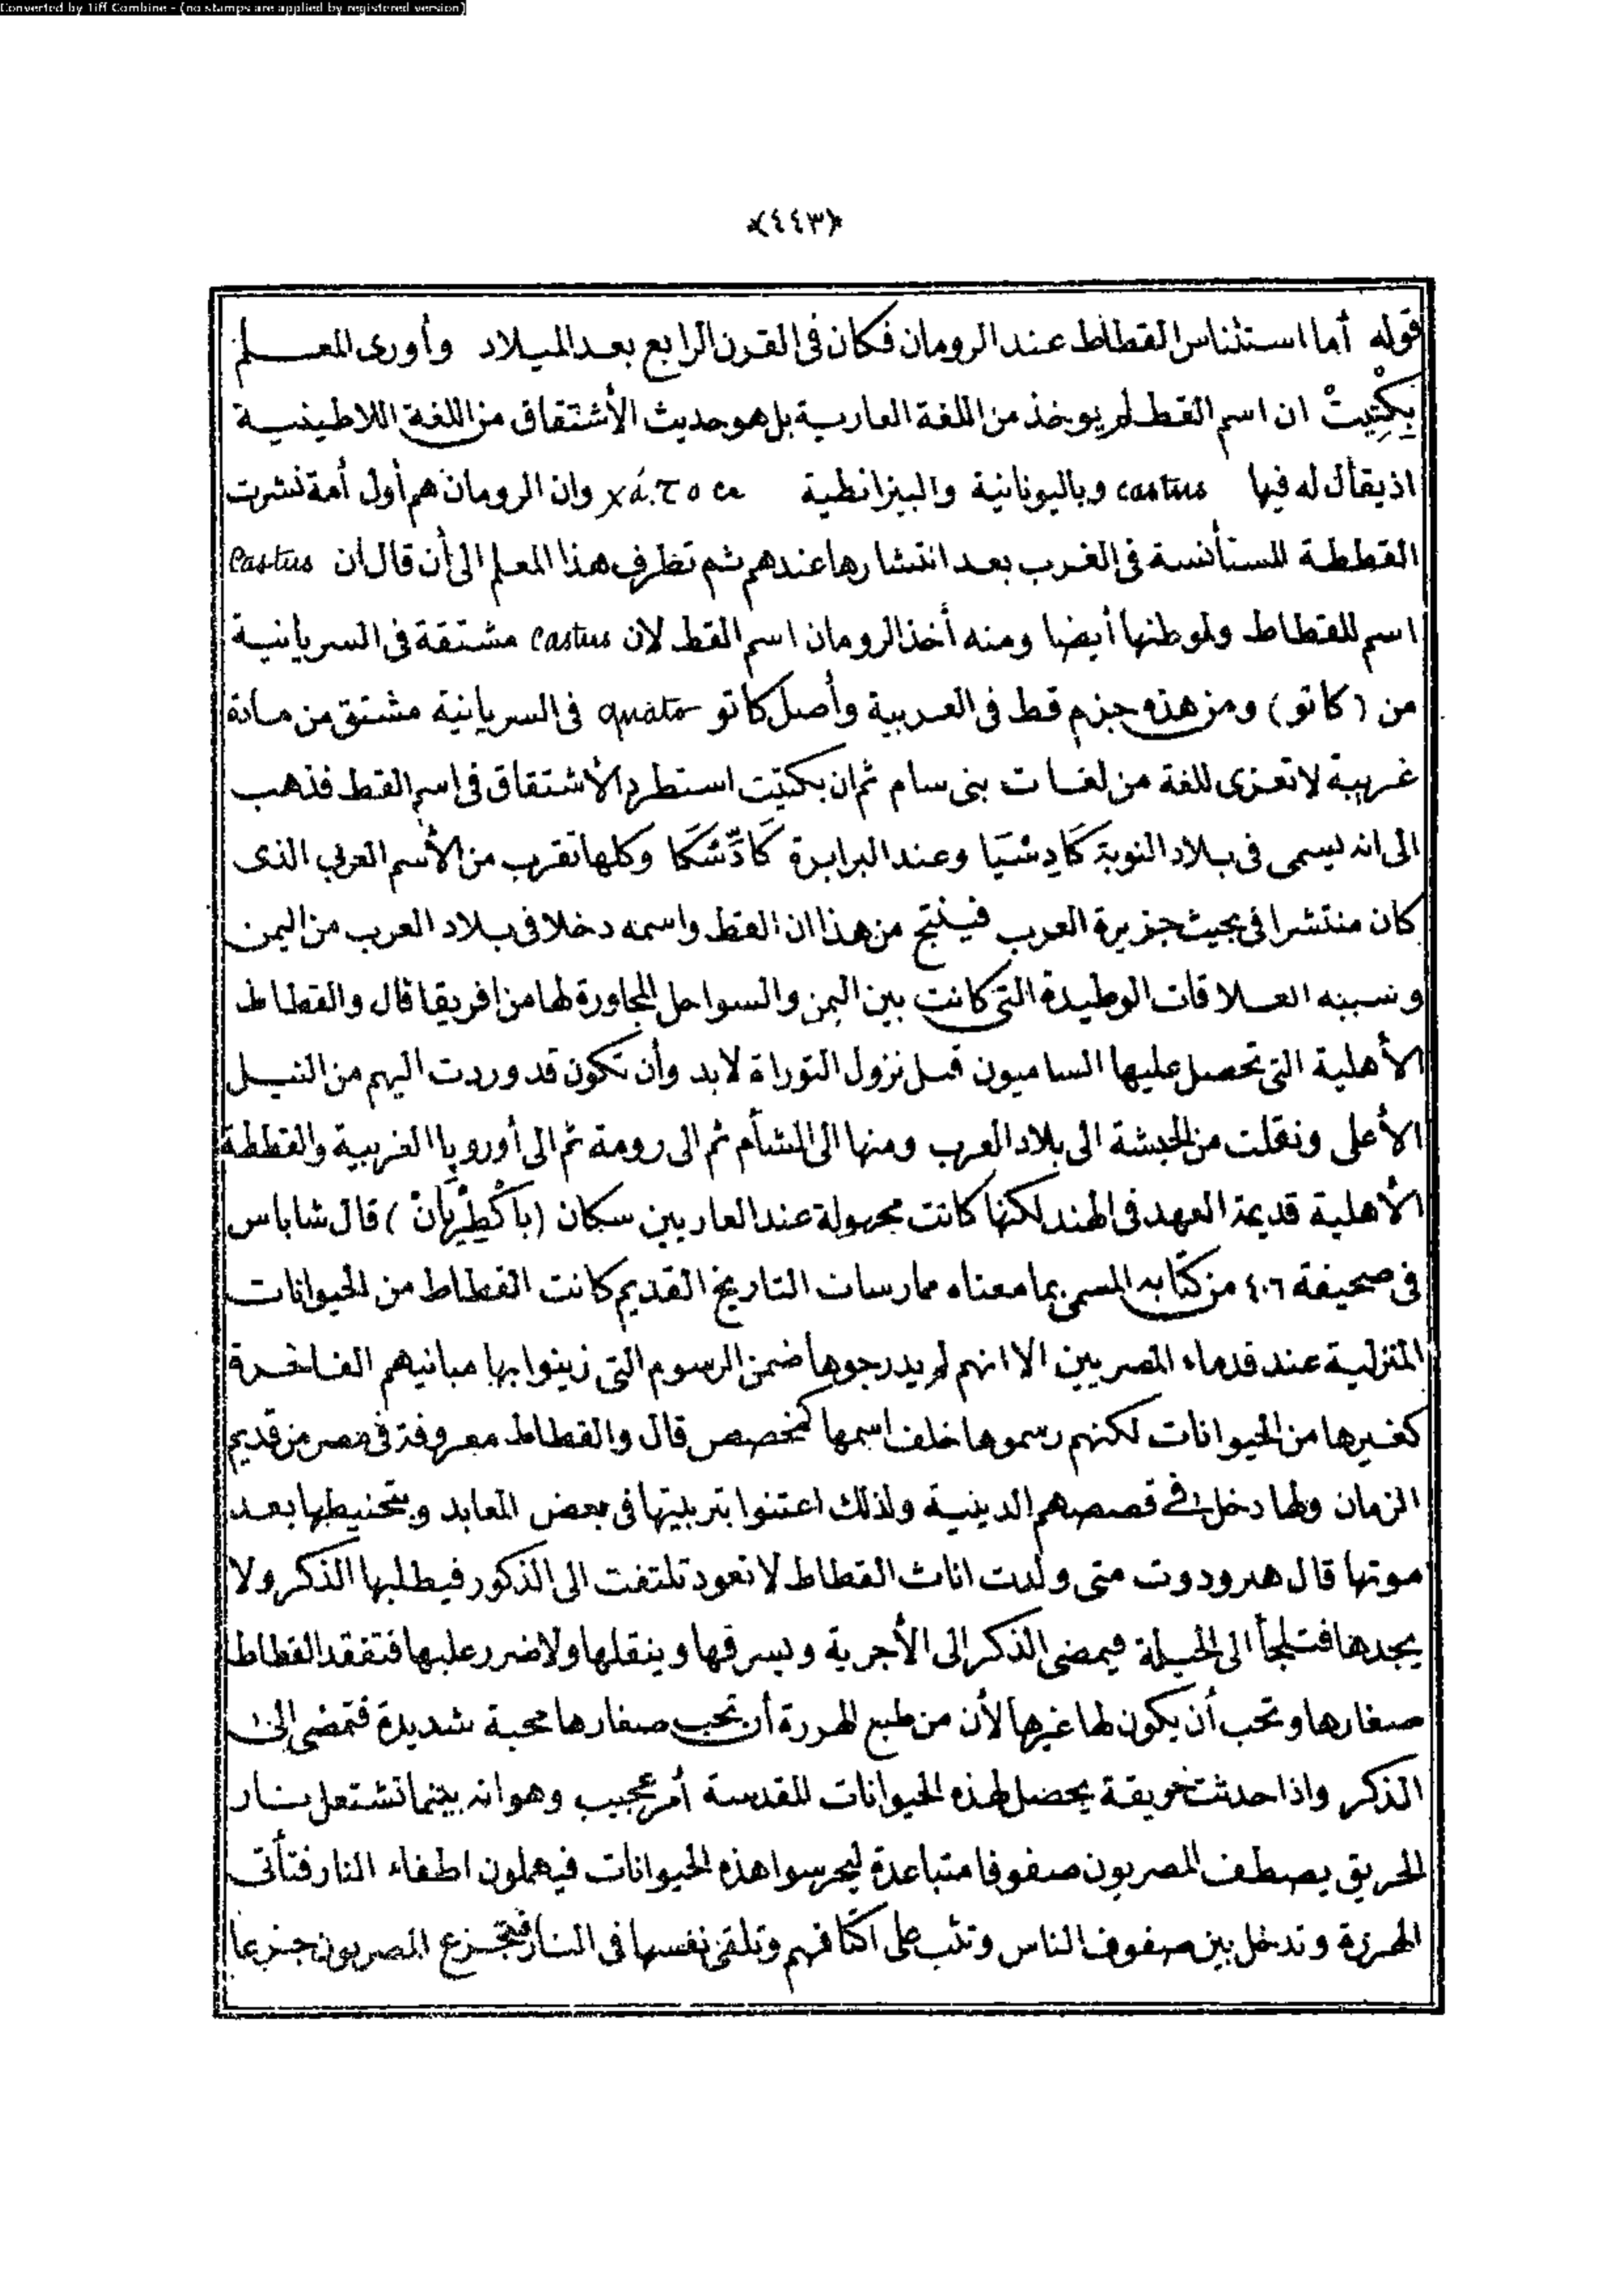 Converted by Tiff Combine - (no stamps are applied by registered version)
﴿٤٤٣﴾
قوله أما استئناس القطاط عند الرومان فكان فى القرن الرابع بعد الميلاد وأورى المعلم
بِكْتِيتْ ان اسم القط لم يوخذ من اللغة العارية بل هو حديث الأشتقاق من اللغة اللاطينية
اذ يقال له فيها castus وباليونانية والبيزانطية وان الرومان هم أول أمة نشرت
القططة المستأنسة فى الغرب بعد انتشارها عندهم ثم تظرف هذا المعلم الى أن قال ان Castus
اسم للقطاط ولموطنها أيضا ومنه أخذ الرومان اسم القط لان castus مشتقة فى السريانية
من (كاتو) ومن هذه جزم قط فى العربية وأصل كاتو quato فى السريانية مشتق من مادة
غريبة لا تعزى للغة من لغات بنى سام ثم ان بكتيت استطرد الأشتقاق فى اسم القط فذهب
الى انه يسمى فى بلاد النوبة كَادِسْيَا وعند البرابرة كَادِّسْكَا وكلها تقرب من الأسم العربي الذى
كان منتشرا فى بحيث جزيرة العرب فينتج من هذا ان القط واسمه دخلا فى بلاد العرب من اليمن
وسببه العلاقات الوطيدة التى كانت بين اليمن والسواحل المجاورة لها من افريقا قال والقطاط
الأهلية التى تحصل عليها الساميون قبل نزول التوراة لابد وأن تكون قد وردت اليهم من النيل
الأعلى ونقلت من الحبشة الى بلاد العرب ومنها الى الشأم ثم الى رومة ثم الى أوروپا الغربية والقططة
الأهلية قديمة العهد فى الهند لكنها كانت مجهولة عند العاريين سكان (باكْطِرْيَانْ) قال شاباس
فى صحيفة ٤٠٦ من كتابه المسمى بما معناه ممارسات التاريخ القديم كانت القطاط من الحيوانات
المنزلية عند قدماء المصريين الا انهم لم يدرجوها ضمن الرسوم التى زينوا بها مبانيهم الفاخرة
كغيرها من الحيوانات لكنهم رسموها خلف اسمها كمخصص قال والقطاط معروفة فى مصر من قديم
الزمان ولها دخل فى قصصهم الدينية ولذلك اعتنوا بتربيتها فى بعض المعابد وبتحنيطها بعد
موتها قال هرودوت متى ولدت اناث القطاط لا تعود تلتفت الى الذكور فيطلبها الذكر ولا
يجدها فتلجأ الى الحيلة فيمضى الذكر الى الأجرية ويسرقها وينقلها ولا ضرر عليها فتفقد القطاط
صغارها وتحب أن يكون لها غيرها لأن من طبع الهررة أن تحب صغارها محبة شديدة فتمضى الى
الذكر واذا حدثت حريقة يحصل لهذه الحيوانات المقدسة أمر عجيب وهو انه بينما تشتعل نار
الحريق يصطف المصريون صفوفا متباعدة ليحرسوا هذه الحيوانات فيهملون اطفاء النار فتأتى
الهررة وتدخل بين صفوف الناس وتثب على اكتافهم وتلقى نفسها فى النار فيجزع المصريون جزعا